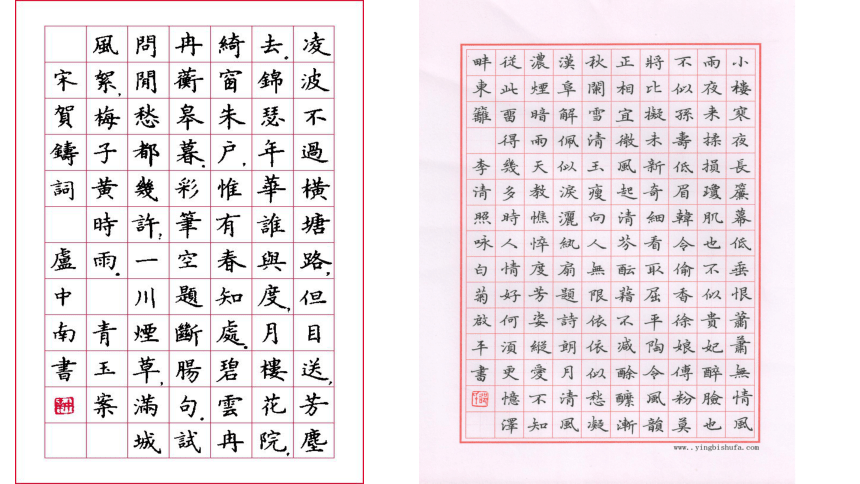 凌波不過橫塘路,但目送,芳塵
去.錦瑟年華誰與度,月樓花院,
綺窗朱户,惟有春知處.碧雲冉
冉蘅皋暮.彩筆空題斷腸句.試
問閒愁都幾許,一川煙草,滿城
風絮,梅子黃時雨. 青玉案
宋賀鑄詞 盧中南書
小樓寒夜長簾幕低垂恨蕭蕭無情風
雨夜来揉損瓊肌也不似貴妃醉臉也
不似孫壽低眉韓令偷香徐娘傅粉莫
將比擬未新奇細看取屈平陶令風韻
正相宜微風起清芬醞藉不減酴醿漸
秋闌雪清玉瘦向人無限依依似愁凝
漢阜解佩似淚灑紈扇題詩朗月清風
濃煙暗雨天教憔悴度芳姿縱愛不知
從此留得幾多時人情好何須更憶澤
畔東籬 李清照咏白菊啟平書
www..yingbishufa.com